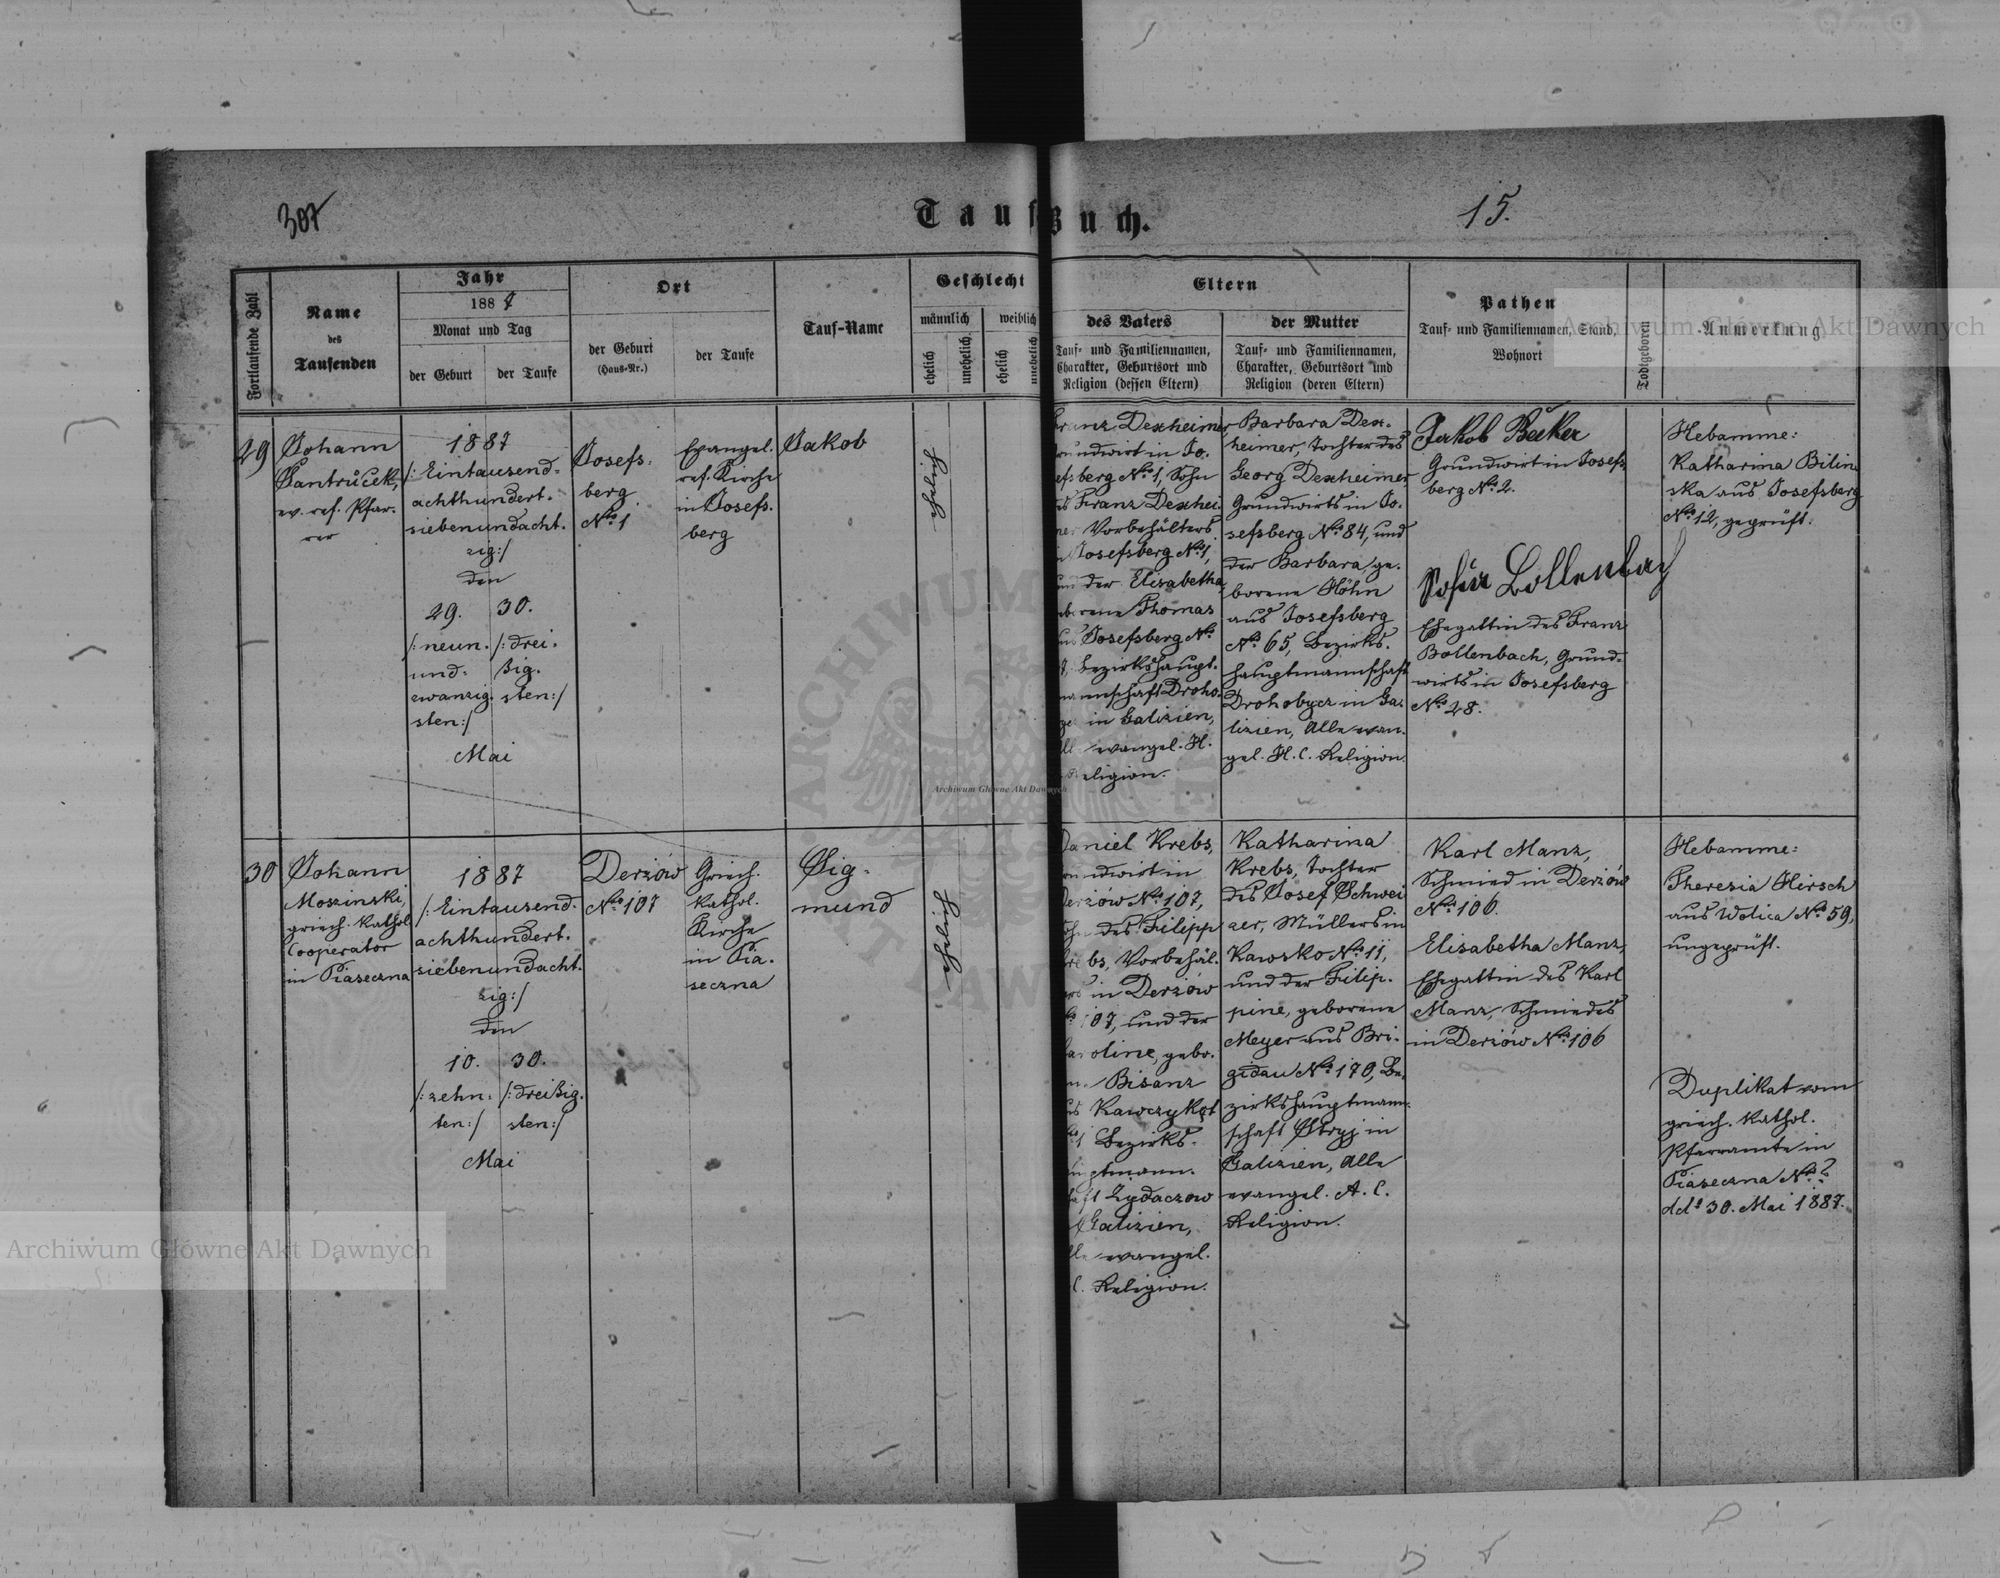 307
Taufbuch.
15.
Fortlaufende Zahl
Name
des
Taufenden
Jahr
1887
Monat und Tag
der Geburt
der Taufe
Ort
der Geburt
(Haus-Nr.)
der Taufe
Tauf-Name
Geschlecht
männlich
weiblich
ehelich
unehelich
ehelich
unehelich
Eltern
des Vaters
Tauf- und Familiennamen,
Charakter, Geburtsort und
Religion (dessen Eltern)
der Mutter
Tauf- und Familiennamen,
Charakter, Geburtsort und
Religion (deren Eltern)
Pathen
Tauf- und Familiennamen, Stand,
Wohnort
Todtgeboren
Anmerkung
29
Johann
Jantrůcek,
ev. ref. Pfar-
rer
1887
/: Eintausend-
achthundert-
siebenundacht-
zig :/
den
29.
/: neun-
und-
zwanzig-
sten :/
30.
/: drei-
ßig-
sten :/
Mai
Josefs-
berg
No. 1
Evangel.
ref. Kirche
in Josefs-
berg
Jakob
ehelich
Franz Dexheimer,
Grundwirt in Jo-
sefsberg No. 1, Sohn
des Franz Dexhei-
mer Vorbehälters
in Josefsberg No. 1,
und der Elisabetha,
geborene Thomas
aus Josefsberg No.
Bezirkshaupt-
mannschaft Droho-
in Galizien,
Alle evangel. H.
Religion.
Barbara Dex-
heimer, Tochter des
Georg Dexheimer
Grundwirts in Jo-
sefsberg No. 84, und
der Barbara, ge-
borene Höhn
aus Josefsberg
No. 65, Bezirks-
hauptmannschaft
Drohobycz in Ga-
lizien, Alle evan-
gel. H. C. Religion.
Jakob Becker
Grundwirt in Josefs-
berg No. 2.
Sofia Bollenbach
Ehegattin des Franz
Bollenbach, Grund-
wirts in Josefsberg
No. 28.
Hebamme:
Katharina Bilin-
ska aus Josefsberg
No. 12, geprüft.
30
Johann
Moszinski,
griech. kathol.
Cooperator
in Piaseczna
1887
/: Eintausend-
achthundert-
siebenundacht-
zig :/
den
10.
/: zehn-
ten :/
30.
/: dreißig-
sten :/
Mai
Derżów
No. 107
Griech.
kathol.
Kirche
in Pia-
seczna
Sig-
mund
ehelich
Daniel Krebs,
Grundwirt in
Derżów No. 107,
Sohn des Filipp
Krebs, Vorbehäl-
ters in Derżów
No. 107, und der
Karoline, gebo-
Bisanz
aus Kawczykąt
Bezirks-
hauptmann-
schaft Żydaczow
Galizien,
Alle evangel.
C. Religion.
Katharina
Krebs, Tochter
des Josef Schwei-
zer, Müllers in
Kawsko No. 11,
und der Filip-
pine, geborene
Meyer aus Bri-
gidau No. 170, Be-
zirkshauptmann-
schaft Stryj in
Galizien, Alle
evangel. A. C.
Religion.
Karl Manz,
Schmied in Derżów
No. 106.
Elisabetha Manz,
Ehegattin des Karl
Manz, Schmiedes
in Derżów No. 106
Hebamme:
Theresia Hirsch
aus Wolica No. 59,
ungeprüft.
Duplikat vom
griech. kathol.
Pfarramte in
Piaseczna No. ?
ddo 30. Mai 1887.
Archiwum Główne Akt Dawnych
Archiwum Główne Akt Dawnych
Archiwum Główne Akt Dawnych